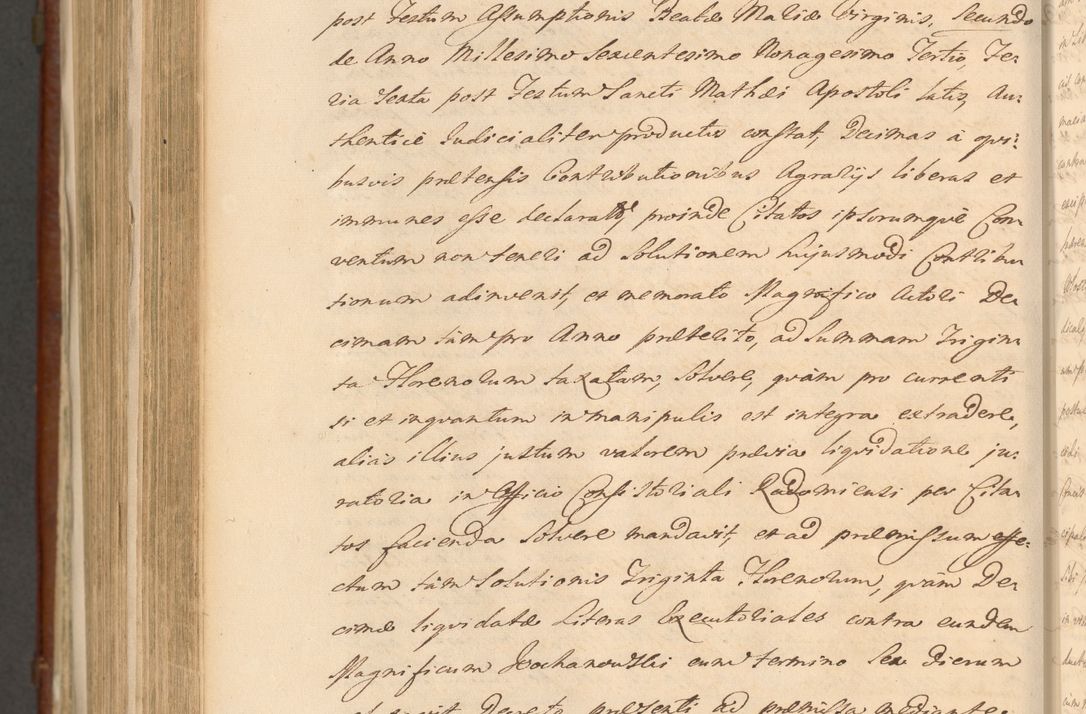 post Festum Assumptionis Beatæ Mariæ Virginis, Secundo
de Anno Millesimo Sexcentesimo Nonagesimo Tertio, Fe:
ria Sexta post Festum Sancti Mathæi Apostoli latis, Au:
thenticè Judicialiter productis constat, Decimas à qvi:
busvis prætensis Contributionibus Agrarijs liberas et
immunes esse declaratas, proinde Citatos ipsorumqvè Con:
ventum non teneri ad Solutionem hujusmodi Contribu:
tionum adinvenit, et memorato Magnifico Actori De:
cimam tùm pro Anno præterito, ad Summam Trigin:
ta Florenorum taxatam, Solvere, qvàm pro currenti
si et inqvantum in manipulis est integra extradere,
alias illius justum valorem prævia liqvidatione ju:
ratoria in Officio Consistoriali Radomiensi per Cita:
tos facienda Solvere mandavit, et ad præmissum effe:
ctum tùm Solutionis Triginta Florenorum, qvàm De:
cimæ liqvidatæ Literas Executoriales contra eundem
Magnificum Kochanowski cum termino Sex Dierum
Decreto præsenti ad præmissa mediante